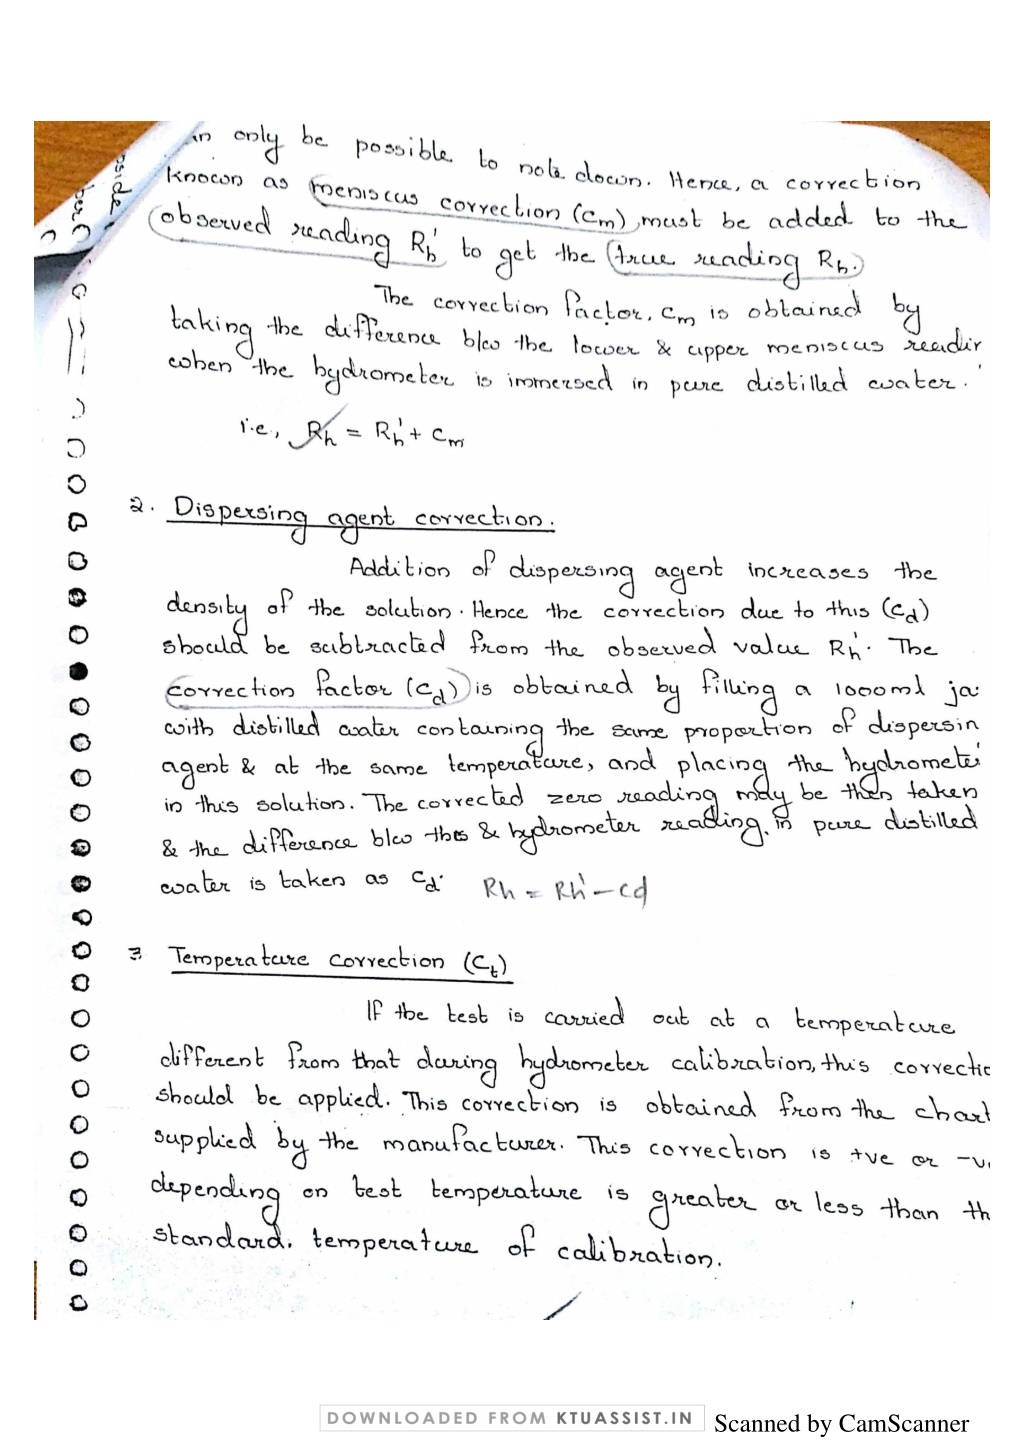 in only be possible to note down. Hence, a correction
known as meniscus correction (Cm), must be added to the
observed reading Rh' to get the true reading Rh.
The correction factor, Cm is obtained by
taking the difference b/w the lower & upper meniscus readin
when the hydrometer is immersed in pure distilled water.
i.e., Rh = Rh' + Cm
2. Dispersing agent correction.
Addition of dispersing agent increases the
density of the solution. Hence the correction due to this (Cd)
should be subtracted from the observed value Rh'. The
correction factor (Cd) is obtained by filling a 1000ml ja
with distilled water containing the same proportion of dispersin
agent & at the same temperature, and placing the hydromete
in this solution. The corrected zero reading may be then taken
& the difference b/w this & hydrometer reading in pure distilled
water is taken as Cd. Rh = Rh' - Cd
3 Temperature correction (Ct)
If the test is carried out at a temperature
different from that during hydrometer calibration, this correctio
should be applied. This correction is obtained from the chart
supplied by the manufacturer. This correction is +ve or -v
depending on test temperature is greater or less than th
standard. temperature of calibration.
DOWNLOADED FROM KTUASSIST.IN
Scanned by CamScanner